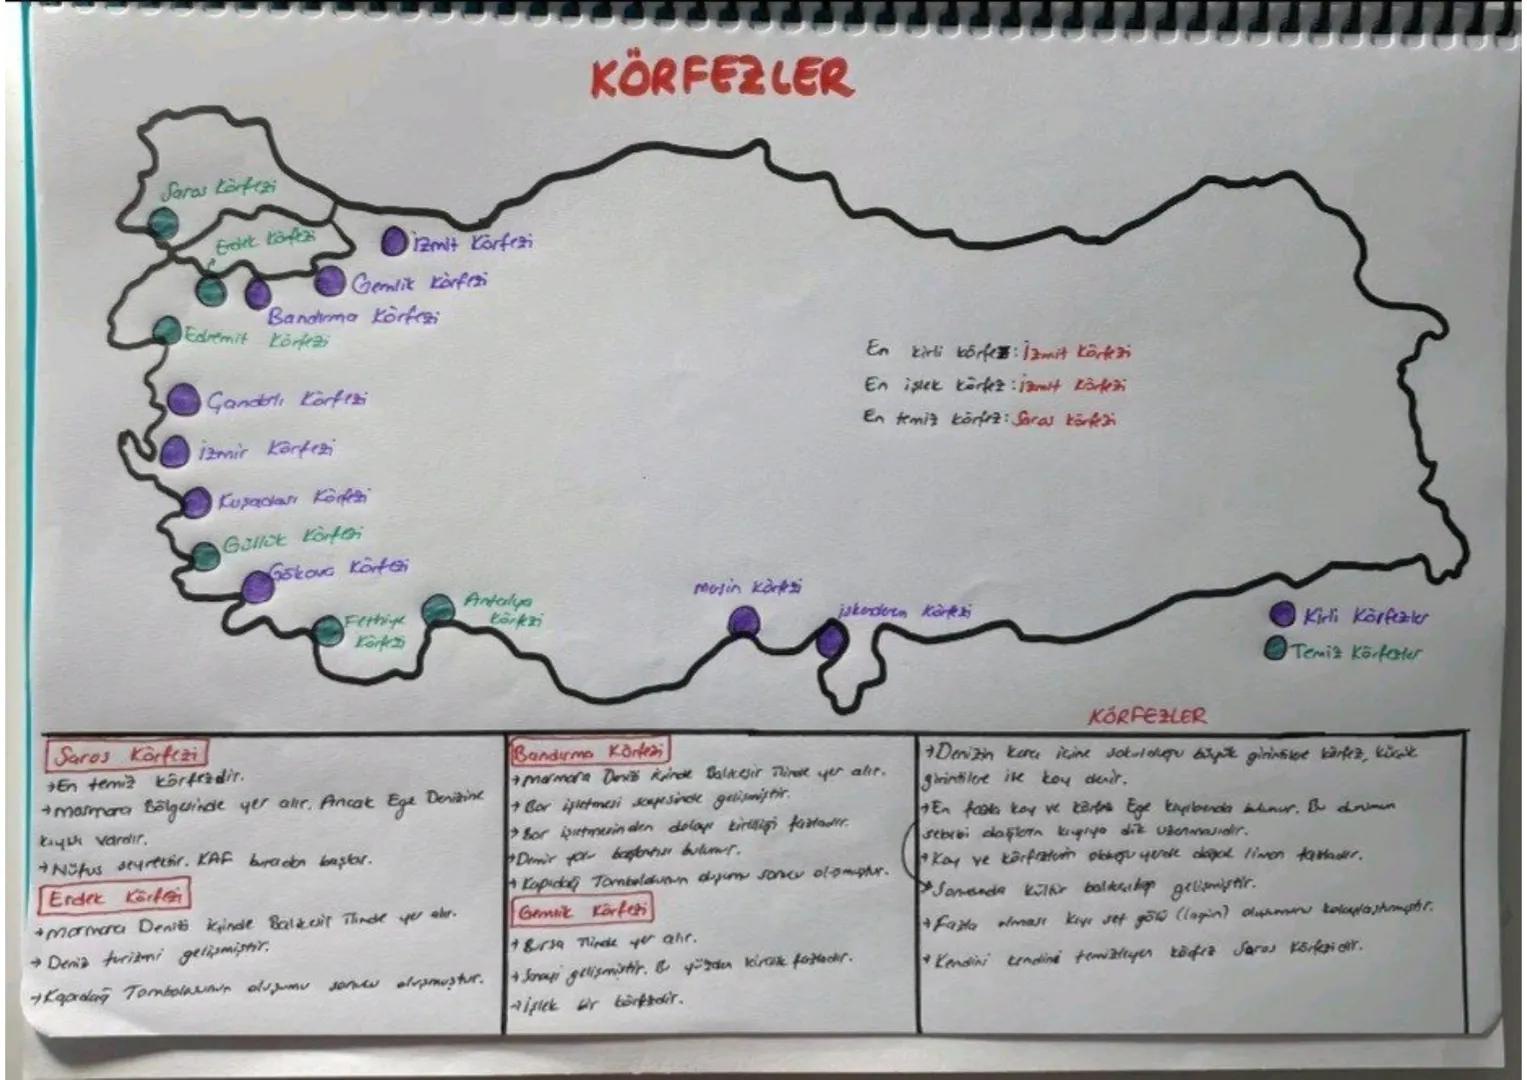 KÖRFEZLER
Saros Körfezi
Erdek Körfezi
İzmit Körfezi
Gemlik Körfezi
Bandırma Körfezi
Edremit Körfezi
Çandarlı Körfezi
İzmir Körfezi
Kuşadası Körfezi
Güllük Körfezi
Gökova Körfezi
Fethiye
Körfezi
Antalya
Körfezi
Mersin Körfezi
İskenderun Körfezi
En kirli körfez: İzmit Körfezi
En işlek körfez: İzmit Körfezi
En temiz körfez: Saros Körfezi
Kirli Körfezler
Temiz Körfezler
KÖRFEZLER
Saros Körfezi
→ En temiz körfezdir.
→ Marmara Bölgesinde yer alır. Ancak Ege Denizine
kıyısı vardır.
→ Nüfus seyrektir. KAF buradan başlar.
Erdek Körfezi
→ Marmara Denizi içinde Balıkesir İlinde yer alır.
→ Deniz turizmi gelişmiştir.
→ Kapıdağ Tombolosunun oluşumu sonucu oluşmuştur.
Bandırma Körfezi
→ Marmara Denizi içinde Balıkesir İlinde yer alır.
→ Bor işletmesi sayesinde gelişmiştir.
→ Bor işletmesinden dolayı kirliliği fazladır.
→ Demir yolu bağlantısı bulunur.
→ Kapıdağ Tombolosunun oluşumu sonucu oluşmuştur.
Gemlik Körfezi
→ Bursa İlinde yer alır.
→ Sanayi gelişmiştir. Bu yüzden kirlilik fazladır.
→ İşlek bir körfezdir.
→ Denizin kara içine sokulduğu büyük girintilere körfez, küçük
girintilere ise koy denir.
→ En fazla koy ve körfez Ege kıyılarında bulunur. Bu durumun
sebebi dağların kıyıya dik uzanmasıdır.
→ Koy ve körfezlerin olduğu yerde doğal liman fazladır.
→ Sonunda kültür balıkçılığı gelişmiştir.
→ Fazla olması kıyı set gölü (lagün) oluşumunu kolaylaştırmıştır.
→ Kendini kendine temizleyen körfez Saros Körfezidir.